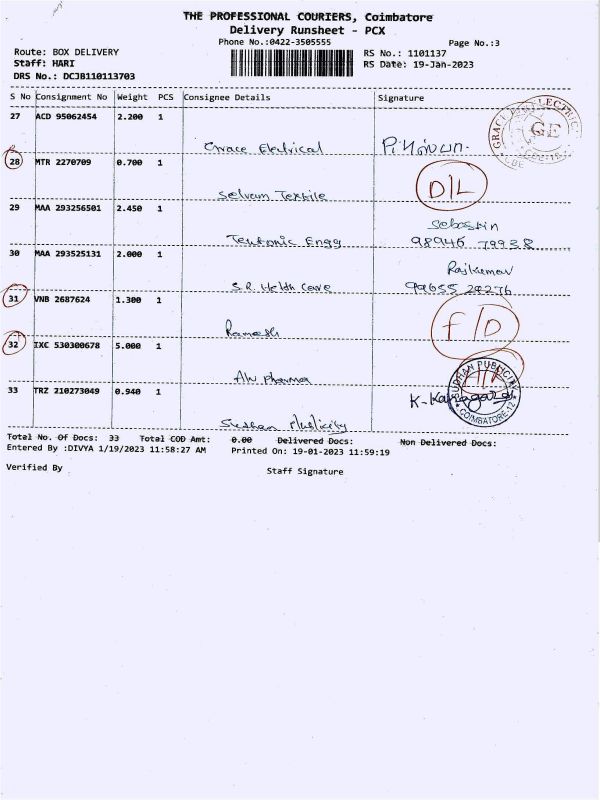 THE PROFESSIONAL COURIERS, Coimbatore
Delivery Runsheet - PCX
Phone No.:0422-3505555
Page No.:3
Route: BOX DELIVERY
RS No.: 1101137
Staff: HARI
RS Date: 19-Jan-2023
DRS No.: DCJB110113703
S No Consignment No Weight PCS Consignee Details Signature
27 ACD 95062454 2.200 1
Grace Electrical
GRACE ELECTRIC
GE
28 MTR 2270709 0.700 1
Selvam Textile
D/L
29 MAA 293256501 2.450 1
Teutonic Engg
98946 79938
30 MAA 293525131 2.000 1
Rajkumar
S.R. Helth Care
31 VNB 2687624 1.300 1
Ramesh
F/D
32 IXC 530300678 5.000 1
pharma
33 TRZ 210273049 0.940 1
PUBLICITY
COIMBATORE-12
Total No. Of Docs: 33 Total COD Amt: 0.00 Delivered Docs: Non Delivered Docs:
Entered By :DIVYA 1/19/2023 11:58:27 AM Printed On: 19-01-2023 11:59:19
Verified By
Staff Signature